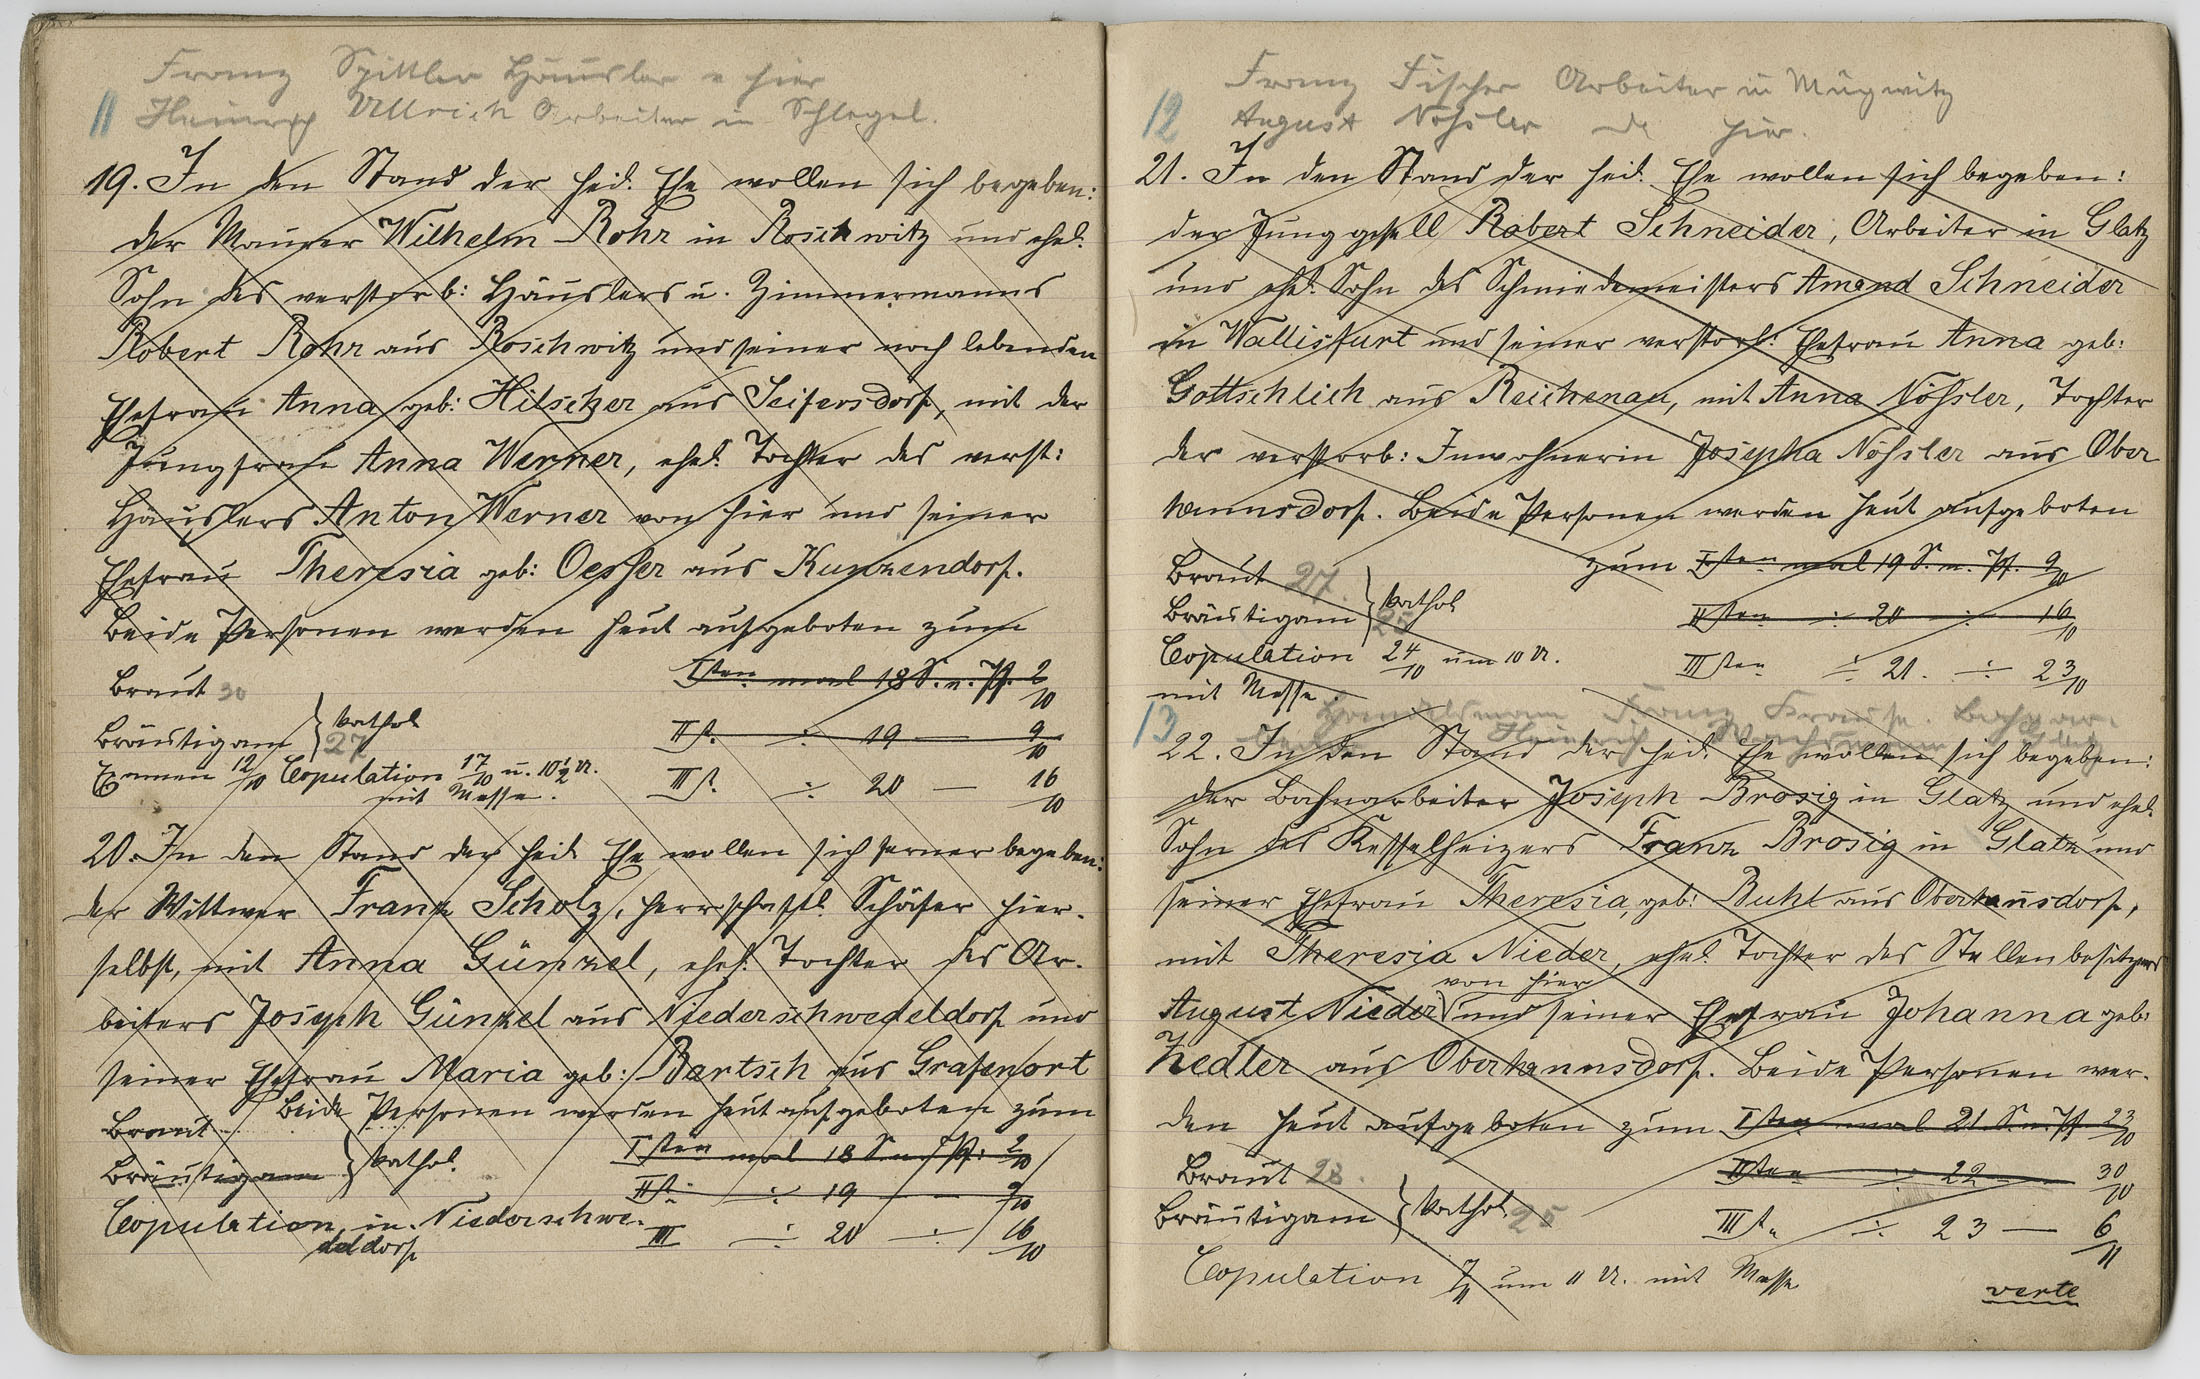 Franz Spittler Häusler v hier
11 Heinrich Ullrich Arbeiter in Schlegel.
19. In den Stand der heil. Ehe wollen sich begeben:
der Maurer Wilhelm Rohr in Roschwitz und ehel.
Sohn des verstorb: Häuslers u. Zimmermanns
Robert Rohr aus Roschwitz und seiner noch lebenden
Ehefrau Anna geb: Hilscher aus Seifersdorf, mit der
Jungfrau Anna Werner, ehel. Tochter des verst:
Häuslers Anton Werner von hier und seiner
Ehefrau Theresia geb: Oesser aus Kunzendorf.
Beide Personen werden heut aufgeboten zum
Braut 30
Isten mal 18 S. n. Pf. 2/10
Bräutigam 27 } kathol
II t. ÷ 19 — 9/10
Examen 12/10 Copulation 17/10 u. 10 1/2 U.
mit Messe.
III t. ÷ 20 — 16/10
20. In den Stand der heil. Ehe wollen sich ferner begeben:
der Wittwer Franz Scholz, herrschaftl. Schäfer hier-
selbst, mit Anna Günzel, ehel. Tochter des Ar-
beiters Joseph Günzel aus Niederschwedeldorf und
seiner Ehefrau Maria geb: Bartsch aus Grafenort
Beide Personen werden heut aufgeboten zum
Braut
Bräutigam } kathol.
Isten mal 18 S. n. Pf: 2/10
II t. ÷ 19 — 9/10
Copulation in Niederschwe-
deldorf
III ÷ 20 ÷ 16/10
Franz Fischer Arbeiter in Mügwitz
12 August Nößler do hier.
21. In den Stand der heil. Ehe wollen sich begeben:
der Junggesell Robert Schneider, Arbeiter in Glatz
und ehel. Sohn des Schmiedemeisters Amand Schneider
in Wallisfurt und seiner verstorb: Ehefrau Anna geb:
Gottschlich aus Reichenau, mit Anna Nößler, Tochter
der verstorb: Inwohnerin Josepha Nößler aus Ober
hannsdorf. Beide Personen werden heut aufgeboten
zum Isten mal 19 S. n. Pf. 9/10
Braut 27.
Bräutigam 25 } kathol
IIsten ÷ 20 ÷ 16/10
Copulation 24/10 um 10 U.
mit Messe.
IIIsten ÷ 21. ÷ 23/10
13 Handelsmann Franz Krause.
Heinrich
22. In den Stand der heil. Ehe wollen sich begeben:
der Bahnarbeiter Joseph Brosig in Glatz und ehel.
Sohn des Kesselheizers Franz Brosig in Glatz und
seiner Ehefrau Theresia, geb: Buhl aus Oberhansdorf,
mit Theresia Nieder, ehel. Tochter des Stellenbesitzers
von hier
August Nieder und seiner Ehefrau Johanna geb:
Zedler aus Oberhannsdorf. Beide Personen wer-
den heut aufgeboten zum Isten mal 21 S. n. Pf 23/10
Braut 28.
IIsten ÷ 22 — 30/10
Bräutigam 25 } kathol
III t. ÷ 23 — 6/11
Copulation 7/11 um 11 U. mit Messe
verte